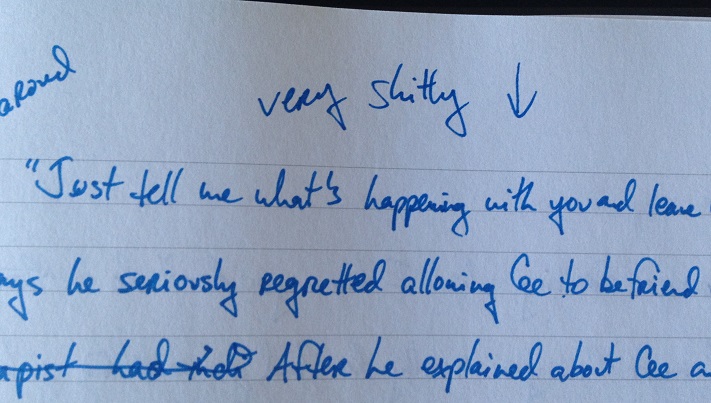 very shitty ↓
"Just tell me what's happening with you and leave
he seriously regretted allowing Cee to befriend
had After he explained about Cee a